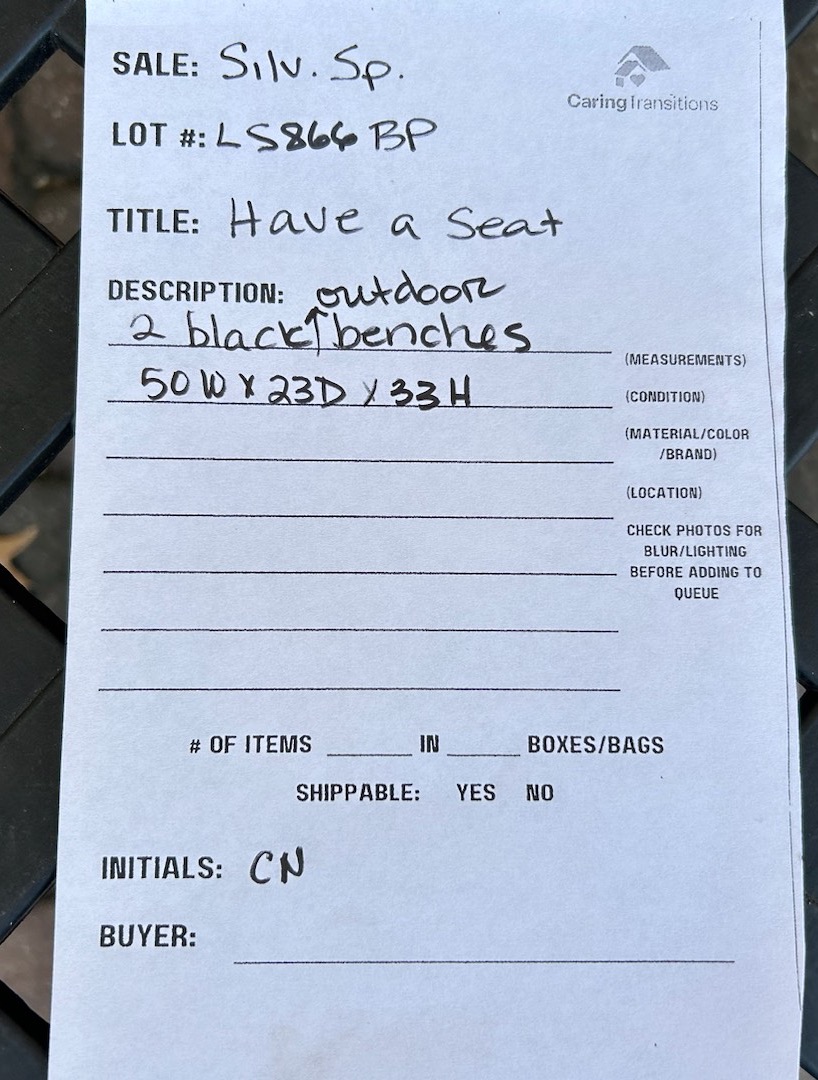 SALE: Silv. Sp.
CaringTransitions
LOT #: LS866 BP
TITLE: Have a Seat
DESCRIPTION: outdoor
2 black ↑ benches
(MEASUREMENTS)
50 W x 23D x 33H
(CONDITION)
(MATERIAL/COLOR
/BRAND)
(LOCATION)
CHECK PHOTOS FOR
BLUR/LIGHTING
BEFORE ADDING TO
QUEUE
# OF ITEMS ______ IN ______ BOXES/BAGS
SHIPPABLE: YES NO
INITIALS: CN
BUYER: